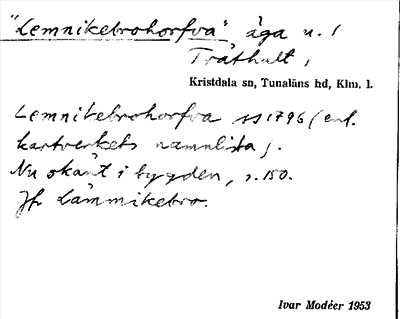 "Lemnikebrohorfva" äga u. /
Tråthult,
Kristdala sn, Tunaläns hd, Klm. l.
Lemnikebrohorfva ss 1796 (enl.
kartverkets namnlista).
Nu okänt i bygden, s. 150.
Jfr Lämmikebro.
Ivar Modéer 1953